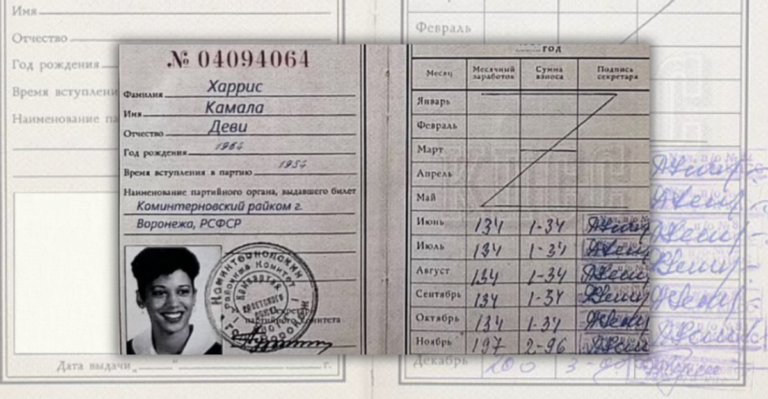 Имя
Отчество
Год рождения
Время вступлени
Наименование па
Дата выдачи „ “ г.
№ 04094064
Фамилия Харрис
Имя Камала
Отчество Деви
Год рождения 1964
Время вступления в партию
Наименование партийного органа, выдавшего билет
Коминтерновский райком г.
Воронежа, РСФСР
Коминтерновский
Районный Комитет
партийного комитета
год
Месяц Месячный заработок Сумма взноса Подпись секретаря
Январь
Февраль
Март
Апрель
Май
Июнь 134 1-34
Июль 134 1-34
Август 134 1-34
Сентябрь 134 1-34
Октябрь 134 1-34
Ноябрь 197 2-96
Февраль
Декабрь